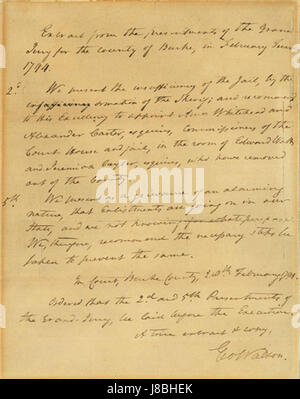 Extract from the presentments of the Grand
Jury for the county of Burke, in February Term
1794.
2d. We present the insufficiency of the Jail, by the
information of the Sheriff, and recommend
to his Excellency to appoint Amos Whitehead and
Alexander Carter, esquires, Commissioners of the
Court House and Jail, in the room of Edward
and Jeremiah, esquires, who have removed
out of the County.
5th. We present as a grievance of an alarming
nature, that Enlistments are going on in our
State, and are not knowing for what purpose
We, therefore, recommend the necessary steps be
taken to prevent the same.
In Court, Burke County, 28th February, 1794.
Ordered that the 2d and 5th Presentments of
the Grand-Jury, be laid before the Executive.
A true extract & copy,
Geo Watson.
alamy
www.alamy.com - J8BHEK